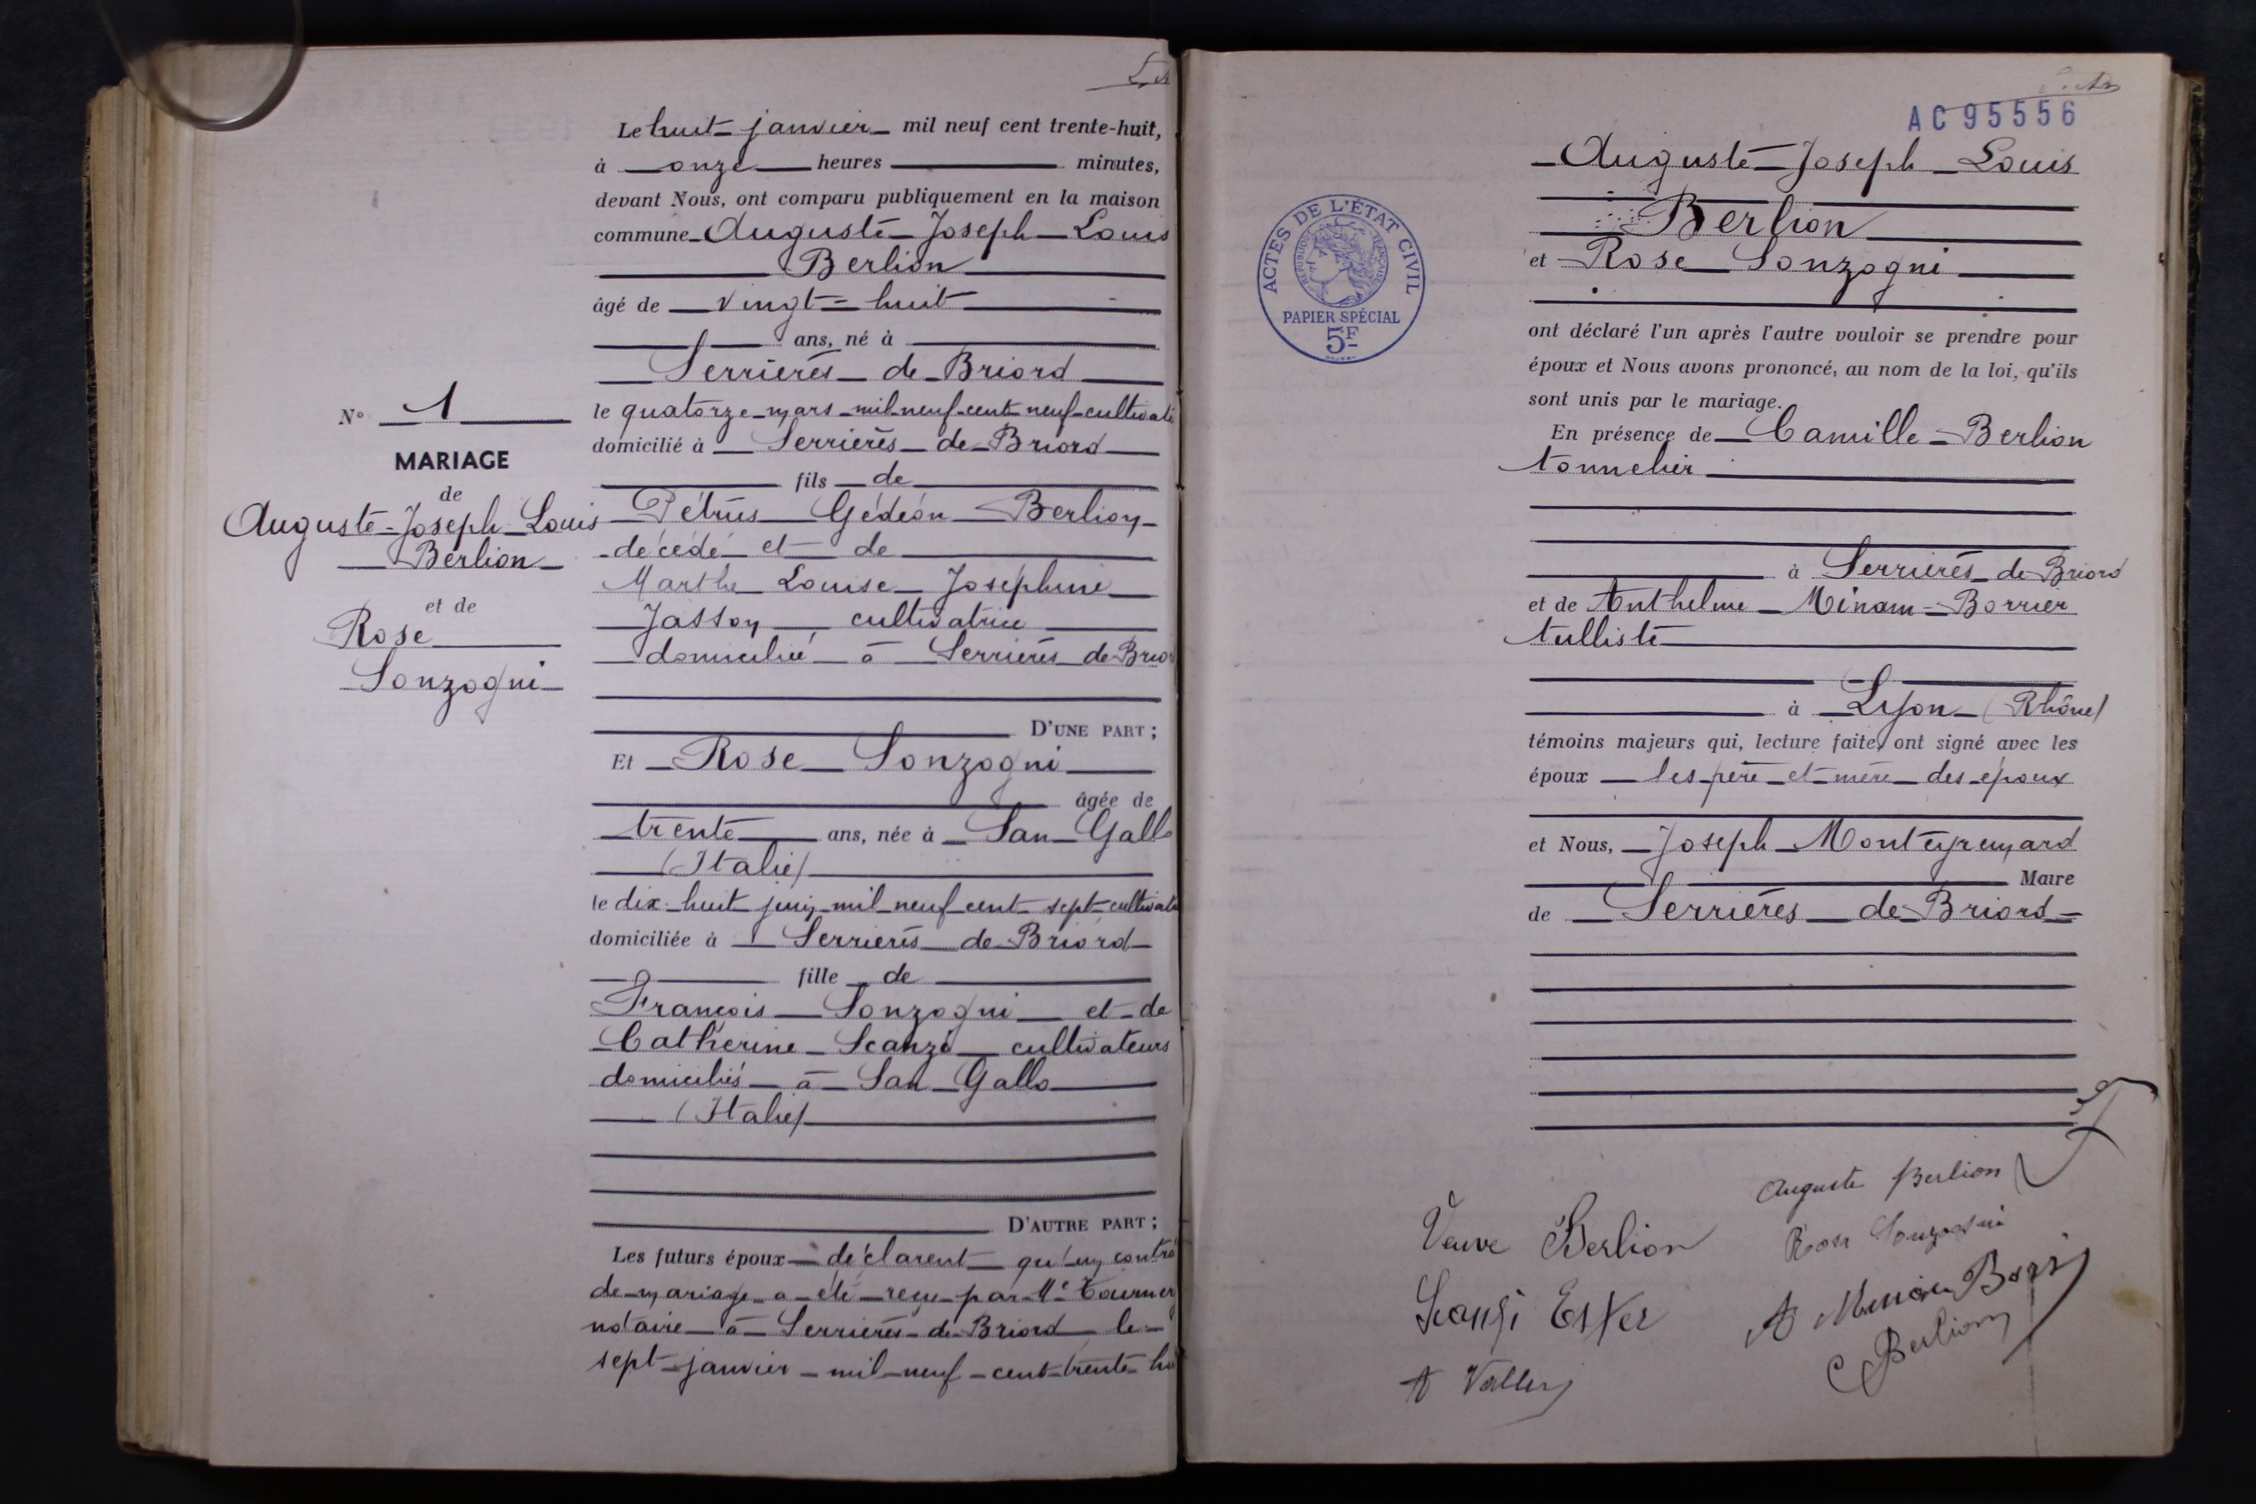 Le huit janvier mil neuf cent trente-huit,
à onze heures minutes,
devant Nous, ont comparu publiquement en la maison
commune Auguste Joseph Louis
Berlion
âgé de vingt = huit
ans, né à
Serrières de Briord
le quatorze mars mil neuf cent neuf cultivat
domicilié à Serrières de Briord
fils de
Pétrus Gédéon Berlion
décédé et de
Marthe Louise Joséphine
Jasson cultivatrice
domiciliée à Serrières de Brior
D'UNE PART ;
Et Rose Sonzogni
âgée de
trente ans, née à San Gallo
(Italie)
le dix huit juin mil neuf cent sept cultivat
domiciliée à Serrières de Briord
fille de
François Sonzogni et de
Catherine Scanzi cultivateurs
domiciliés à San Gallo
(Italie)
D'AUTRE PART ;
Les futurs époux déclarent qu'un contra
de mariage a été reçu par Me
notaire à Serrières de Briord le
sept janvier mil neuf cent trente hui
N° 1
MARIAGE
de
Auguste Joseph Louis
Berlion
et de
Rose
Sonzogni
AC 95556
ACTES DE L'ÉTAT CIVIL
RÉPUBLIQUE FRANÇAISE
PAPIER SPÉCIAL
5F
Auguste Joseph Louis
Berlion
et Rose Sonzogni
ont déclaré l'un après l'autre vouloir se prendre pour
époux et Nous avons prononcé, au nom de la loi, qu'ils
sont unis par le mariage.
En présence de Camille Berlion
tonnelier
à Serrières de Briord
et de Anthelme Minam = Borrier
tulliste
à Lyon (Rhône)
témoins majeurs qui, lecture faite, ont signé avec les
époux les père et mère des époux
et Nous, Joseph Monteyremard
Maire
de Serrières de Briord =
Auguste Berlion
Veuve Berlion
Rose Sonzogni
Scanzi Ester
C Berlion